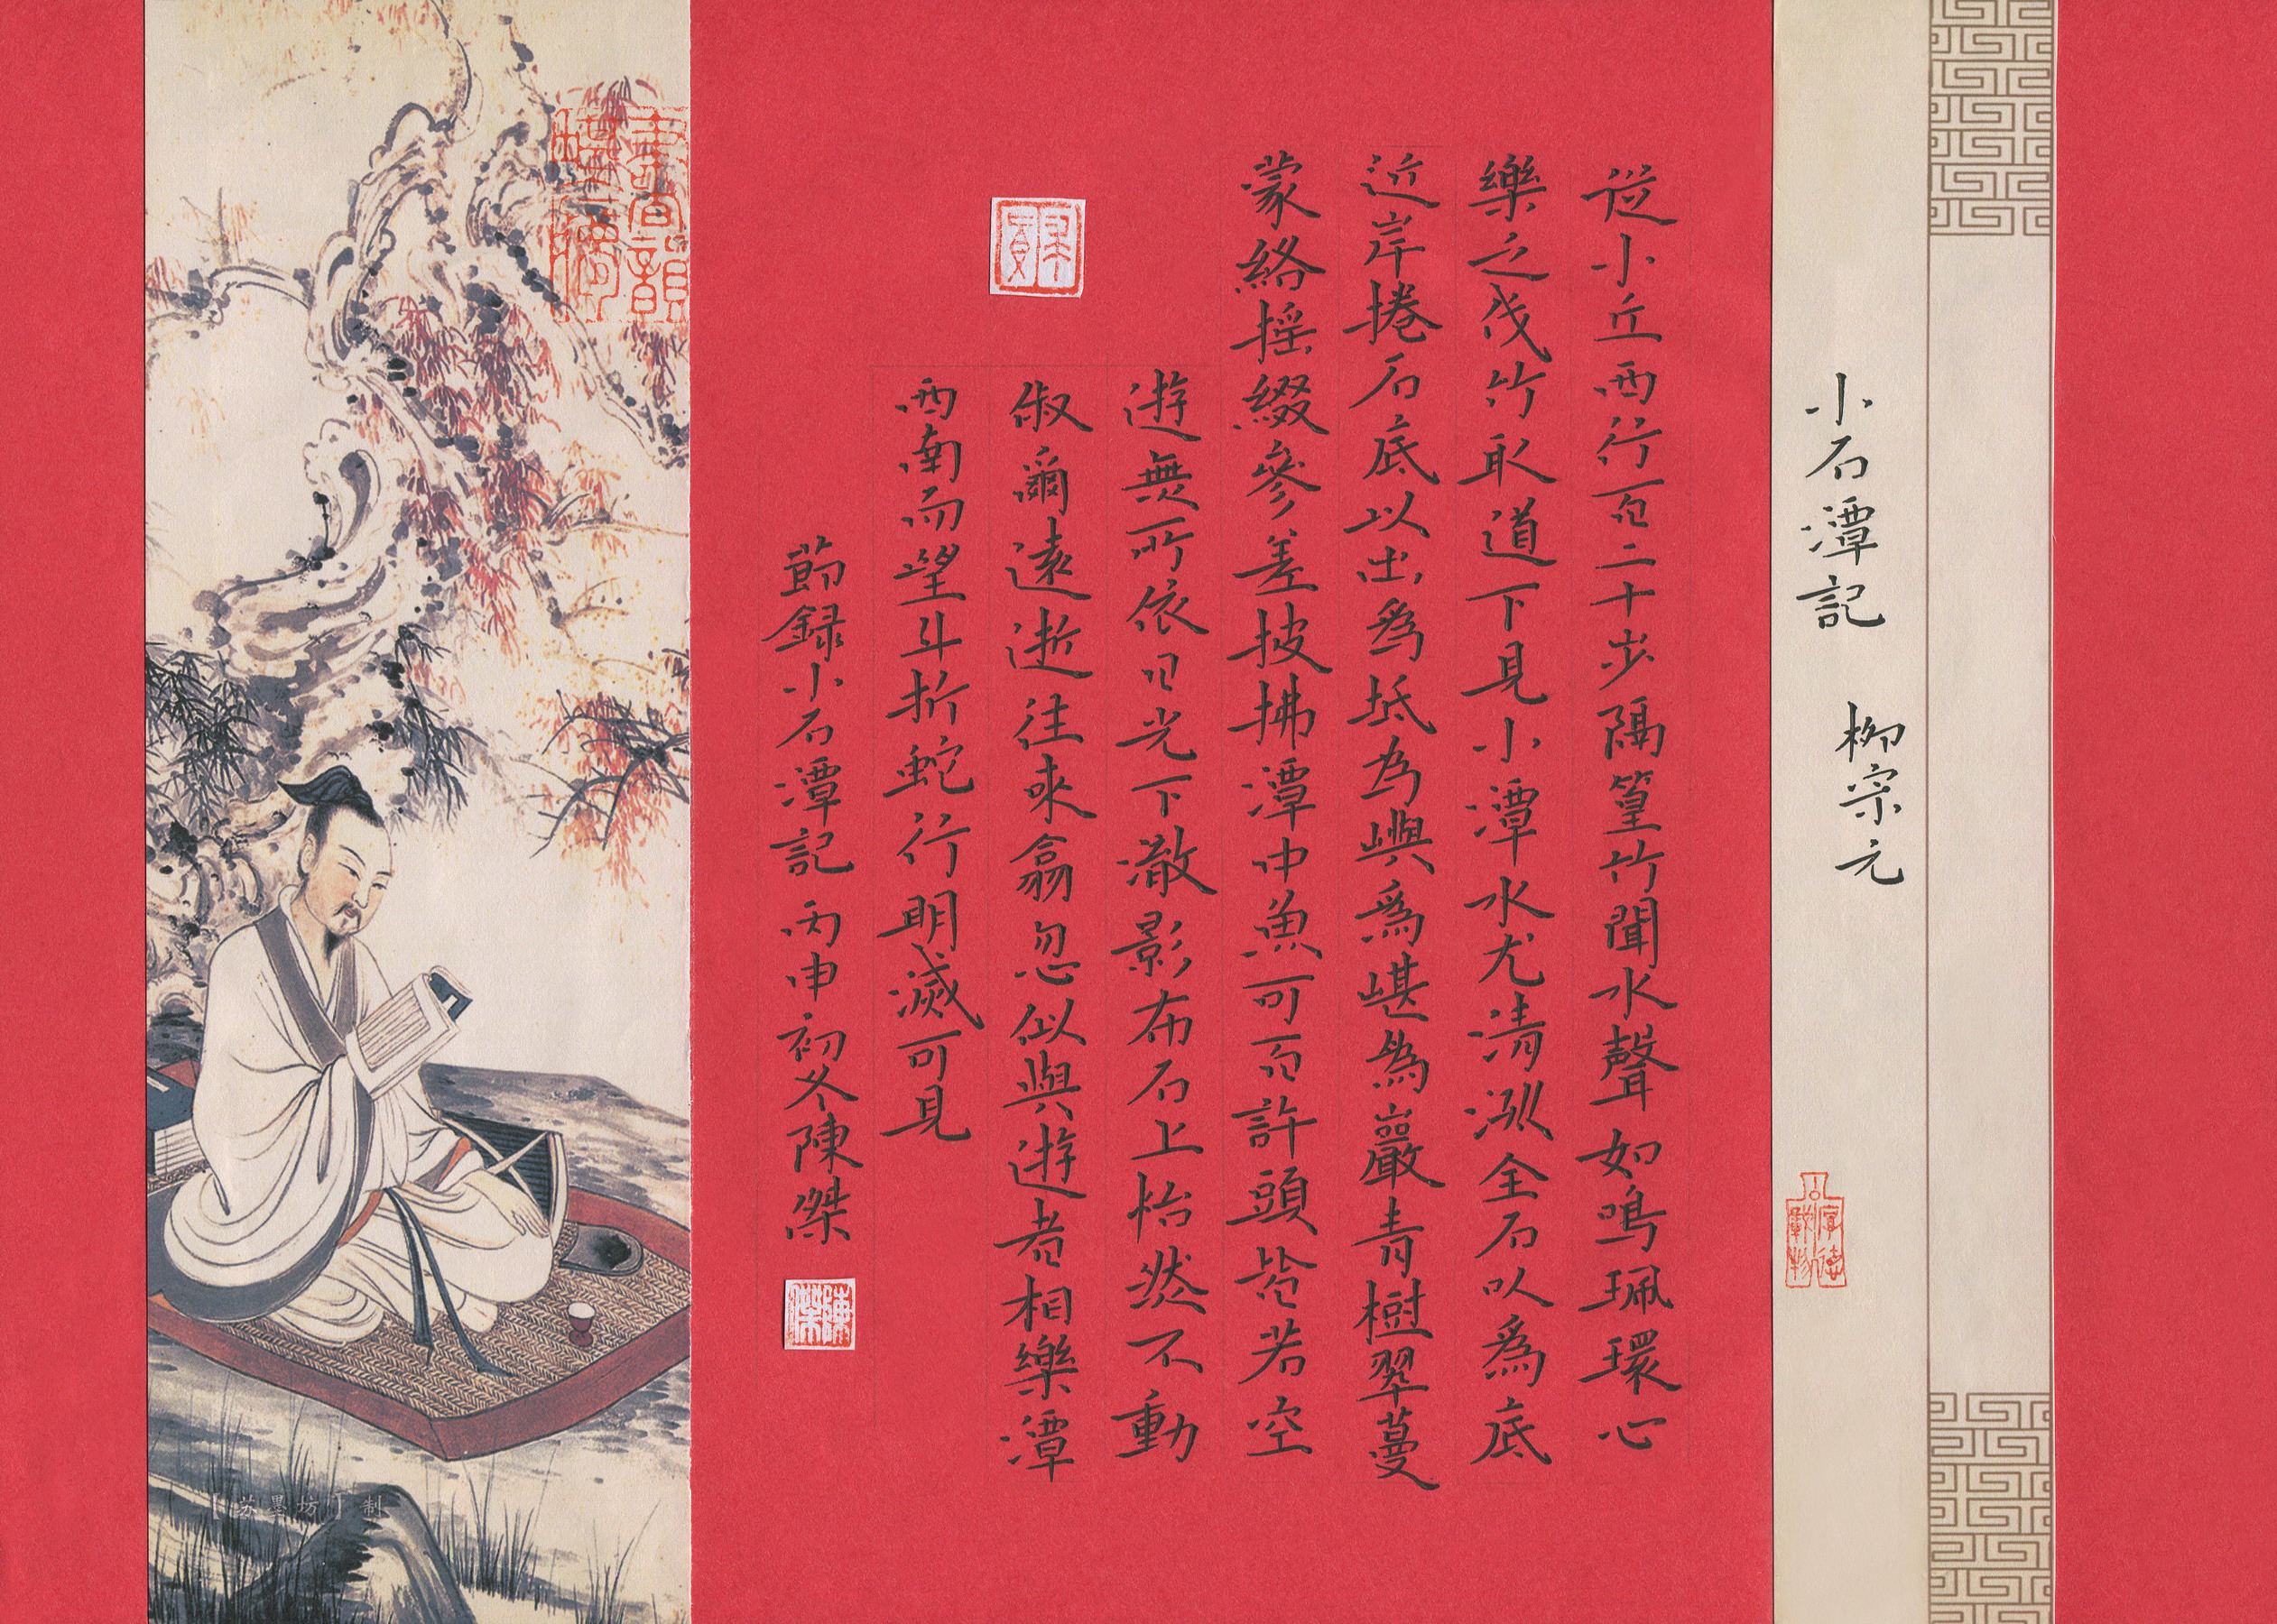 小石潭記 柳宗元
從小丘西行百二十步隔篁竹聞水聲如鳴珮環心
樂之伐竹取道下見小潭水尤清冽全石以為底
近岸捲石底以出為坻為嶼為嵁為巖青樹翠蔓
蒙絡摇綴參差披拂潭中魚可百許頭皆若空
遊無所依日光下澈影布石上怡然不動
俶爾遠逝往來翕忽似與遊者相樂潭
西南而望斗折蛇行明滅可見
節録小石潭記 丙申初冬陳傑
陳傑
書香韻
厚德載物
【苏墨坊】制